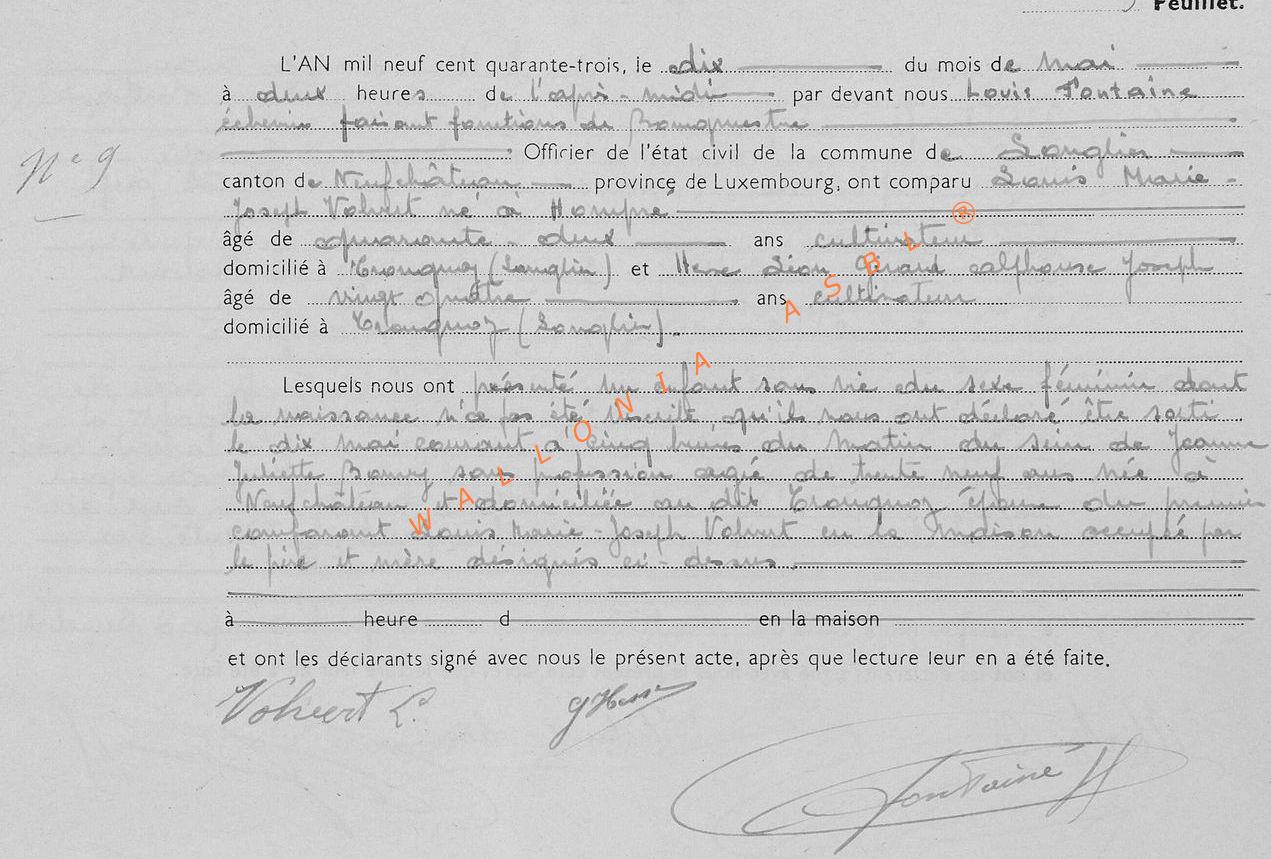 Feuillet.
L'AN mil neuf cent quarante-trois, le dix du mois de mai
à deux heures de l'après-midi par devant nous Louis Fontaine
échevin faisant fonctions de Bourgmestre
Officier de l'état civil de la commune de Longlier
N° 9
canton de Neufchâteau province de Luxembourg, ont comparu Louis Marie-
Joseph Volvert né à Hompré
âgé de quarante-deux ans cultivateur
domicilié à Tronquoy (Longlier) et Léon Alphonse Joseph
âgé de vingt quatre ans cultivateur
domicilié à Tronquoy (Longlier).
Lesquels nous ont présenté un enfant sans vie du sexe féminin dont
la naissance n'a pas été inscrite, qu'ils nous ont déclaré être sorti
le dix mai courant à cinq heures du matin du sein de Jeanne
Juliette sans profession agée de trente neuf ans née à
Neufchâteau et domiciliée au dit Tronquoy épouse du premier
comparant Louis Marie-Joseph Volvert en la maison occupée par
le père et mère désignés ci-dessus.
à heure d en la maison
et ont les déclarants signé avec nous le présent acte, après que lecture leur en a été faite.
Volvert L.
Fontaine
WALLONIA ASBL ®